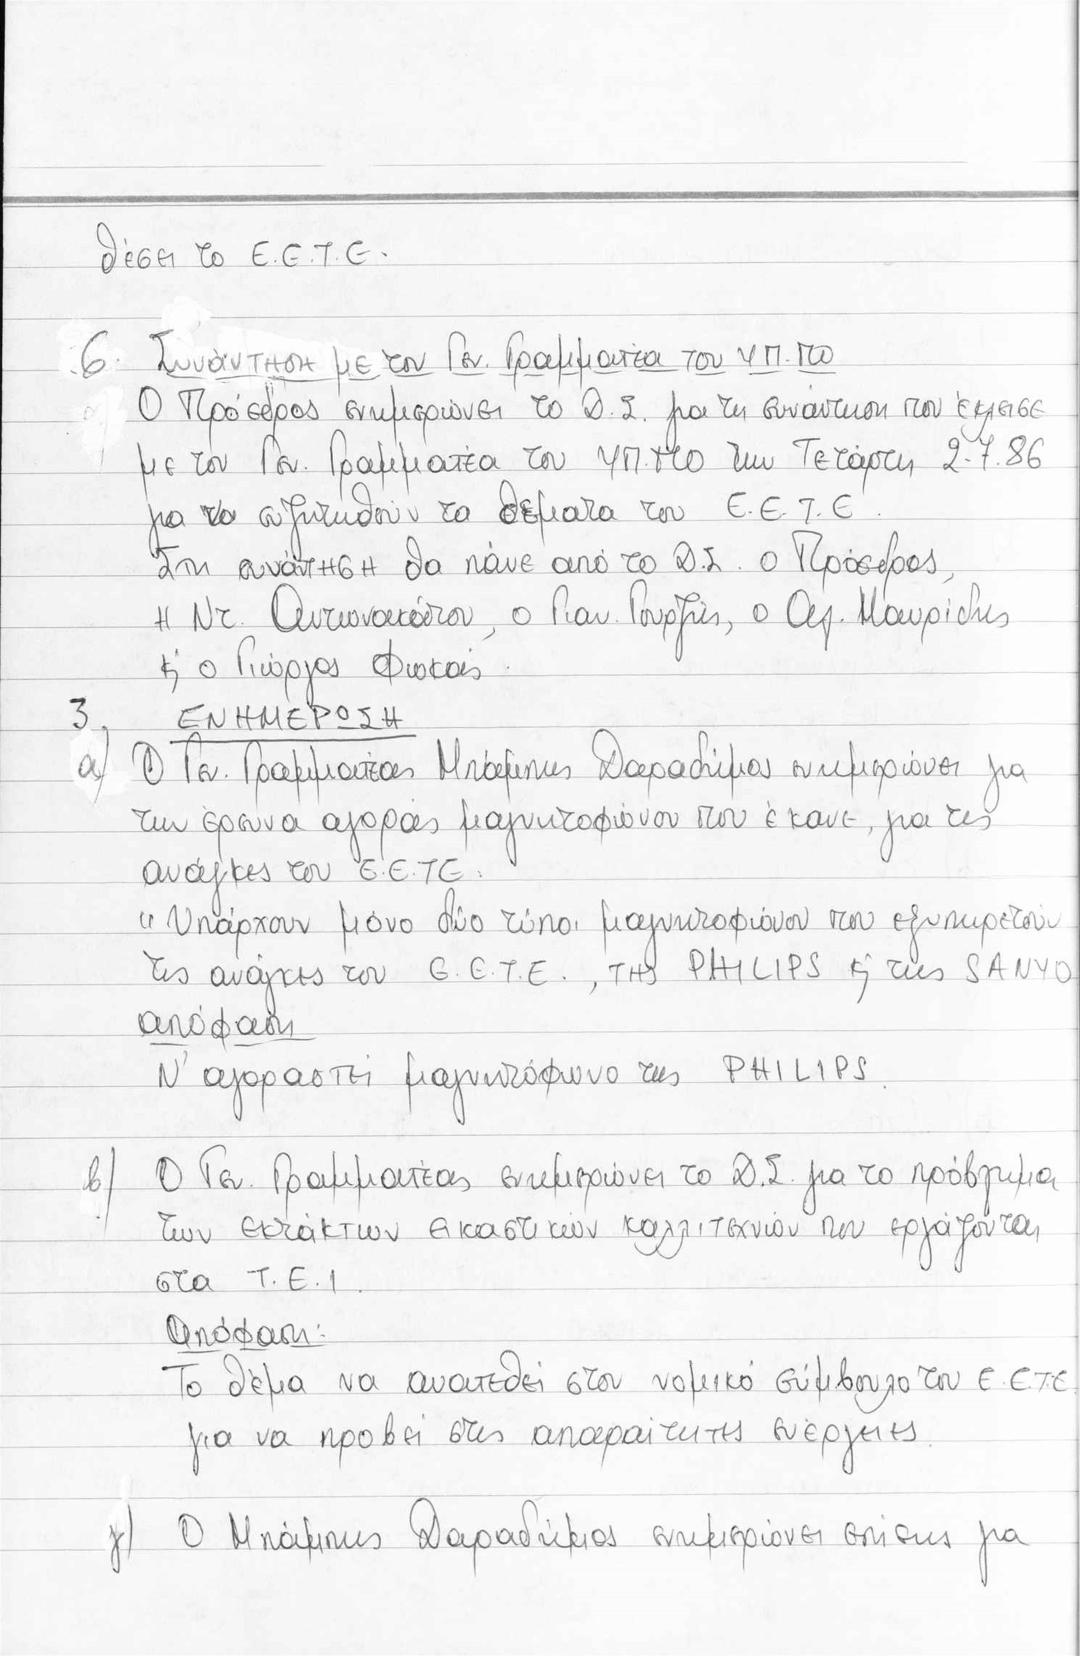 θέσει το Ε.Ε.Τ.Ε.
6. Συνάντηση με τον Γεν. Γραμματέα του ΥΠ.ΠΟ
Ο Πρόεδρος ενημερώνει το Δ.Σ. για τη συνάντηση που έκλεισε
με τον Γεν. Γραμματέα του ΥΠ.ΠΟ την Τετάρτη 2-7.86
για να συζητηθούν τα θέματα του Ε.Ε.Τ.Ε.
Στη συνάντηση θα πάνε από το Δ.Σ. ο Πρόεδρος,
η Ντ. Αντωνακάτου, ο Γιαν. Γουρζής, ο Αγ. Μαυρίδης
ή ο Γιώργος Φωκάς.
3. ΕΝΗΜΕΡΩΣΗ
α) Ο Γεν. Γραμματέας Μπάμπης Δαραδήμος ενημερώνει για
την έρευνα αγοράς μαγνητοφώνου που έκανε, για τις
ανάγκες του Ε.Ε.ΤΕ.
"Υπάρχουν μόνο δύο τύποι μαγνητοφώνου που εξυπηρετούν
τις ανάγκες του Ε.Ε.Τ.Ε., της PHILIPS ή της SANYO
απόφαση
Ν' αγοραστεί μαγνητόφωνο της PHILIPS.
β) Ο Γεν. Γραμματέας ενημερώνει το Δ.Σ. για το πρόβλημα
των εκτάκτων εικαστικών καλλιτεχνών που εργάζονται
στα Τ.Ε.Ι.
Απόφαση:
Το θέμα να ανατεθεί στον νομικό σύμβουλο του Ε.Ε.Τ.Ε.
για να προβεί στις απαραίτητες ενέργειες.
γ) Ο Μπάμπης Δαραδήμος ενημερώνει επίσης για